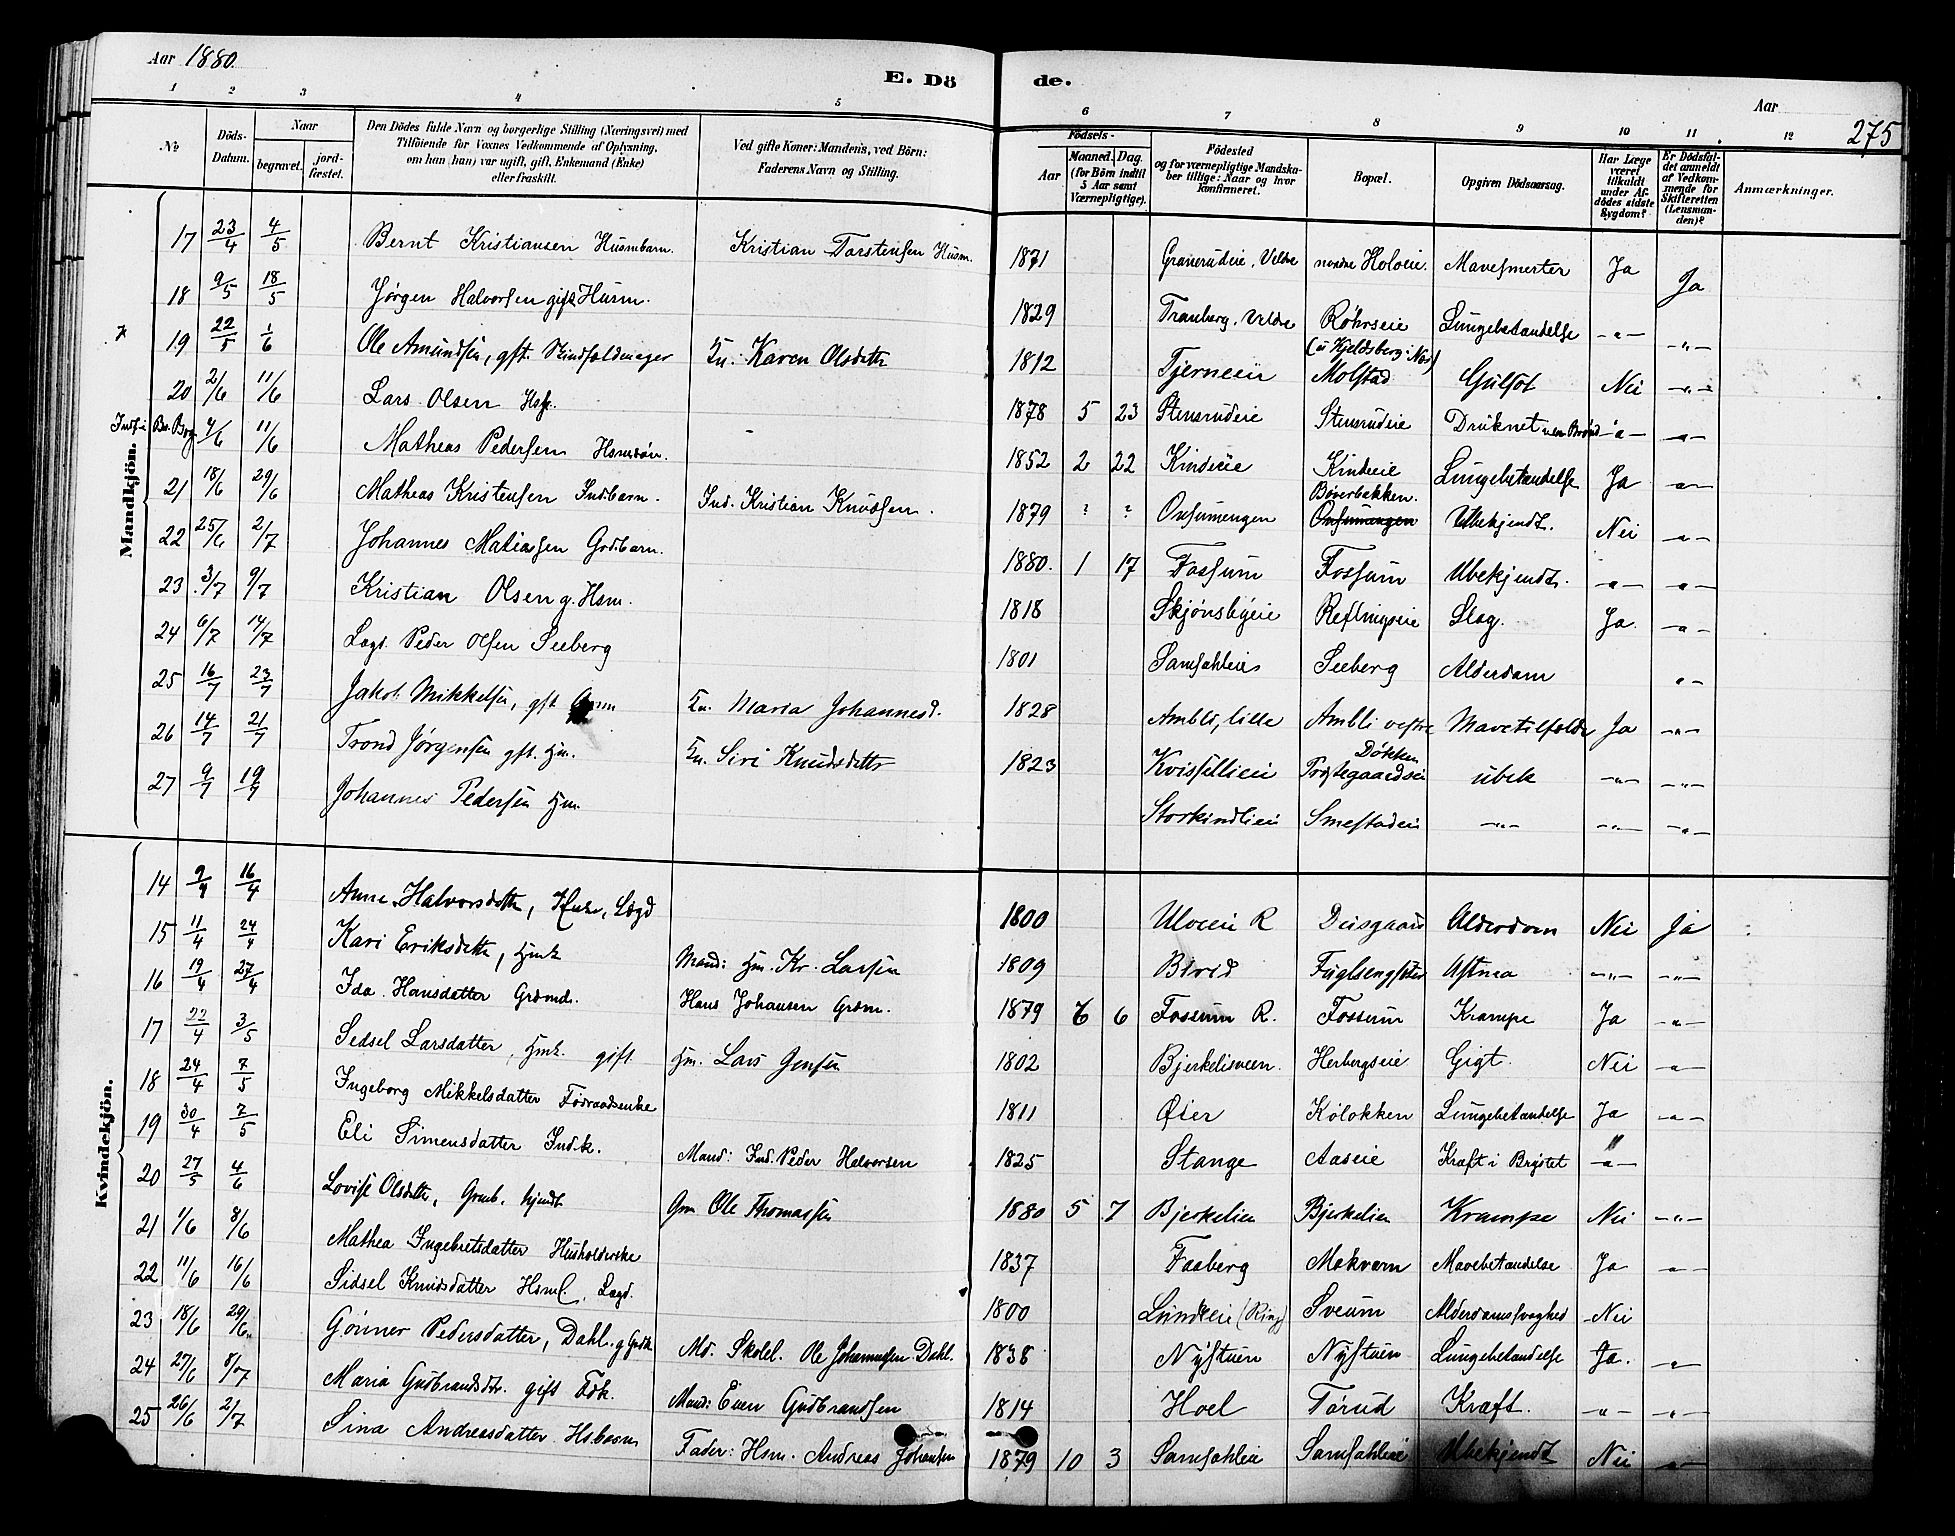 Aar 1880.
E. Döde.
Aar
275
1 2 3 4 5 6 7 8 9 10 11 12
No
Döds-Datum.
Naar
begravet.
jord-fæstet.
Den Dödes fulde Navn og borgerlige Stilling (Næringsvei) med Tilföiende för Voxnes Vedkommende af Oplysning, om han (hun) var ugift, gift, Enkemand (Enke) eller fraskilt.
Ved gifte Koner: Mandens, ved Börn: Faderens Navn og Stilling.
Födsels-
Aar
Maaned. Dag.
(for Börn indtil 5 Aar samt Værnepligtige).
Födested og for værnepligtige Mandskaber tillige: Naar og hvor konfirmeret.
Bopæl.
Opgiven Dödsaarsag.
Har Læge været tilkaldt under Afdödes sidste Sygdom?
Er Dödsfaldet anmeldt af Vedkommende for Skifteretten (Lensmanden)?
Anmærkninger.
Mandkjön.
17 23/4 4/5 Bernt Kristiansen Husmbarn. Kristian Torstensen Husm. 1871 nordre Holoeie. Mavesmerter Ja Ja
18 9/5 18/5 Jørgen Halvorsen gift Husm. 1829 Tranberg, Veldre Røhrseie Lungebetændelse -"- -"-
19 22/5 1/6 Ole Amundsen, gft. Ku: Karen Olsdatter 1812 Tjerneien Molstad Gulsot Nei -"-
20 2/6 11/6 Lars Olsen 1878 5 23 Stensrudeie Stensrudeie Druknet -"- -"-
4/6 11/6 Matheas Pedersen 1852 2 22 Kindeie Kindeie Lungebetændelse Ja -"-
21 18/6 29/6 Mathias Kristensen Indbarn. Ind. Kristian Knudsen. 1879 ? ? Onsumengen Bøverbakken. Ubekjendt. Nei -"-
22 25/6 2/7 Johannes Matiassen Grdbarn. 1880. 1 17 Fossum Fossum Ubekjendt. -"- -"-
23 3/7 9/7 Kristian Olsen g. Hsm. 1818 Skjønsbyeie Reflingseie Slag. Ja -"-
24 6/7 14/7 Lægd. Peder Olsen Seeberg 1801 Seeberg Alderdom -"-
25 16/7 23/7 Jakob Mikkelsen, gft Ku. Maria Johannesd. 1828 Ambli, lille Ambli vestre Mavetilfælde Ja -"-
26 14/7 21/7 Trond Jørgensen gft. Hm. Ku. Siri Knudsdatter 1823 Døkken Prestegaardseie ubek -"- -"-
27 9/7 19/7 Johannes Pedersen Hm. Storkindlien Smestadeie -"- -"- -"-
Kvindekjön.
14 9/4 16/4 Anne Halvorsdatter, Enke, Lægd 1800 Uloeie R Alderdom Nei Ja
15 11/4 24/4 Kari Eriksdatter, Hmk Mand: Hm. Kr. Larsen 1809 Birid Astma -"- -"-
16 19/4 27/4 Ida Hansdatter Hans Johansen 1879 6 6 Fossum R. Fossum Krampe Ja -"-
17 22/4 3/5 Sidsel Larsdatter, Hmk. gift Hm. Lars Jensen 1802 Herbergseie Gigt. Nei -"-
18 24/4 7/5 Ingeborg Mikkelsdatter Föderaadsenke 1811 Øier Kolokken Lungebetændelse Ja -"-
19 30/4 7/5 Eli Simensdatter Indk. Mand: Ind. Peder Halvorsen 1825 Stange Aaseie Kræft i Brystet -"-
20 27/5 4/6 Lovise Olsdatter, Gm Ole Thomassen 1880 5 7 Bjerkelien Bjerkelien Krampe Nei -"-
21 1/6 8/6 Mathea Ingebretsdatter Husholderske 1837 Faaberg Mokvern Mavebetændelse Ja -"-
22 11/6 16/6 Sidsel Knudsdatter Lægd. 1800 Lundeeie (Ring) Sveum Alderdomssvaghed Nei
23 18/6 29/6 Gønner Pedersdatter, Dahl. Md. Skolel. Ole Johannesen Dahl. 1838 Nystuen Nystuen Lungebetændelse Ja. -"-
24 27/6 8/7 Maria Gudbrandsdtr. gift Fdk. Mand: Even Gudbrandsen 1814 Hoel Torud Kræft. -"- -"-
25 26/6 2/7 Sina Andreasdatter Hsbarn Fader: Hsm. Andreas Johansen 1879 10 3 Samsahleie Samsahleie Ubekjendt Nei -"-